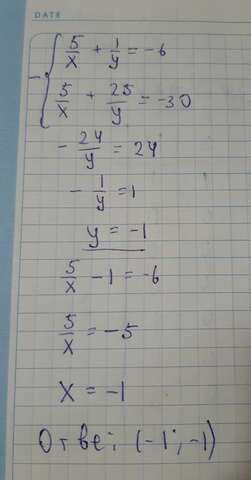 DATE
5/x + 1/y = -6
5/x + 25/y = -30
- 24/y = 24
- 1/y = 1
y = -1
5/x - 1 = -6
5/x = -5
x = -1
Ответ: (-1; -1)